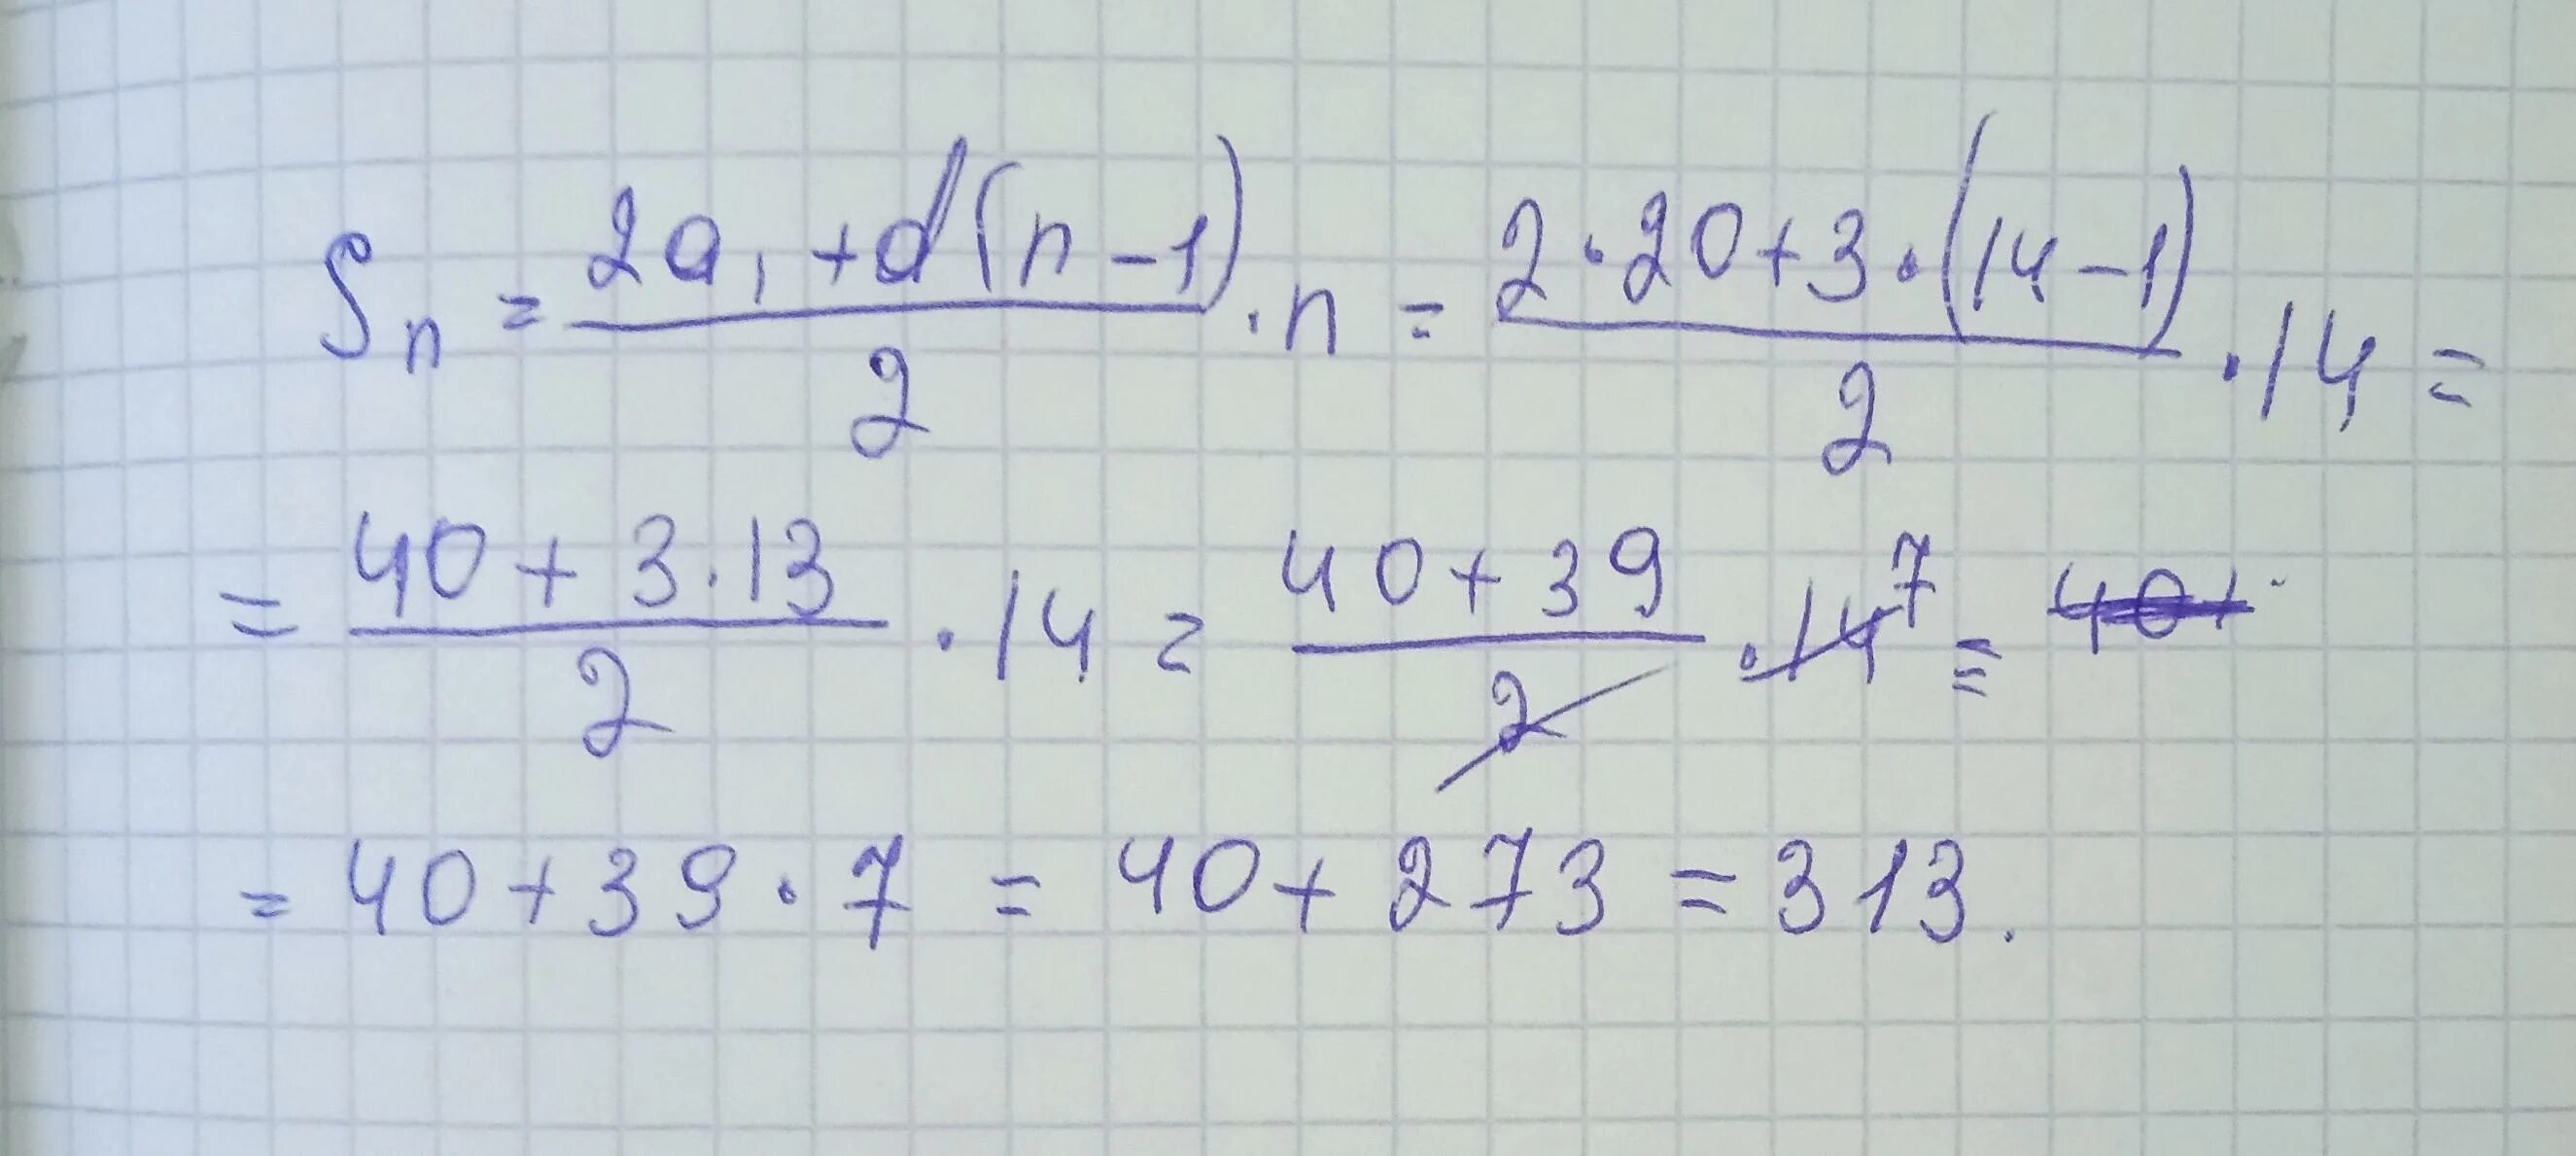 Sₙ = (2a₁ + d(n − 1))/2 · n = (2 · 20 + 3 · (14 − 1))/2 · 14 =
= (40 + 3 · 13)/2 · 14 = (40 + 39)/2 · 14 7 = 40+
= 40 + 39 · 7 = 40 + 273 = 313.